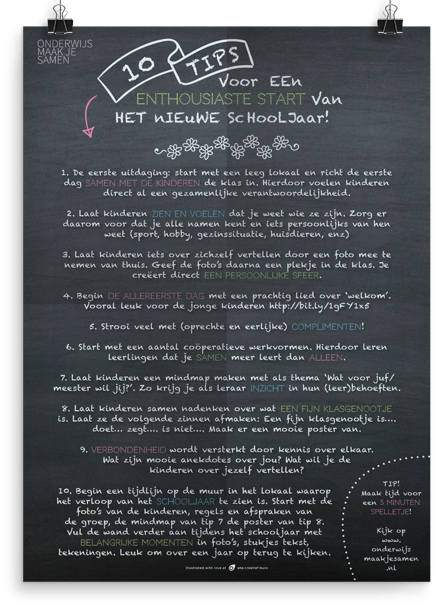 ONDERWIJS
MAAK JE
SAMEN
10 TIPS
Voor EEN
ENTHOUSIASTE START Van
HET nIEuWE ScHooLJaar!
1. De eerste uitdaging: start met een leeg lokaal en richt de eerste
dag SAMEN MET DE KINDEREN de klas in. Hierdoor voelen kinderen
direct al een gezamenlijke verantwoordelijkheid.
2. Laat kinderen ZIEN EN VOELEN dat je weet wie ze zijn. Zorg er
daarom voor dat je alle namen kent en iets persoonlijks van hen
weet (sport, hobby, gezinssituatie, huisdieren, enz)
3. Laat kinderen iets over zichzelf vertellen door een foto mee te
nemen van thuis. Geef de foto's daarna een plekje in de klas. Je
creëert direct EEN PERSOONLIJKE SFEER.
4. Begin DE ALLEREERSTE DAG met een prachtig lied over 'welkom'.
Vooral leuk voor de jonge kinderen http://bit.ly/1gFY1x5
5. Strooi veel met (oprechte en eerlijke) COMPLIMENTEN!
6. Start met een aantal coöperatieve werkvormen. Hierdoor leren
leerlingen dat je SAMEN meer leert dan ALLEEN.
7. Laat kinderen een mindmap maken met als thema 'Wat voor juf/
meester wil jij?'. Zo krijg je als leraar INZICHT in hun (leer)behoeften.
8. Laat kinderen samen nadenken over wat EEN FIJN KLASGENOOTJE
is. Laat ze de volgende zinnen afmaken: Een fijn klasgenootje is....
doet... zegt.... is niet.... Maak er een mooie poster van.
9. VERBONDENHEID wordt versterkt door kennis over elkaar.
Wat zijn mooie anekdotes over jou? Wat wil je de
kinderen over jezelf vertellen?
10. Begin een tijdlijn op de muur in het lokaal waarop
het verloop van het SCHOOLJAAR te zien is. Start met de
foto's van de kinderen, regels en afspraken van
de groep, de mindmap van tip 7 de poster van tip 8.
Vul de wand verder aan tijdens het schooljaar met
BELANGRIJKE MOMENTEN in foto's, stukjes tekst,
tekeningen. Leuk om over een jaar op terug te kijken.
TIP!
Maak tijd voor
een 5 MINUTEN
SPELLETJE!
Kijk op
www.
onderwijs
maakjesamen
.nl